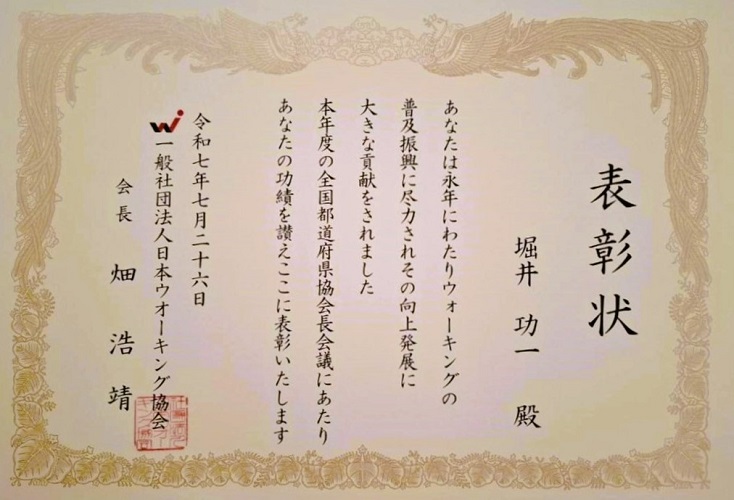 表彰状
堀井 功一 殿
あなたは永年にわたりウォーキングの
普及振興に尽力されその向上発展に
大きな貢献をされました
本年度の全国都道府県協会長会議にあたり
あなたの功績を讃えここに表彰いたします
令和七年七月二十六日
一般社団法人日本ウオーキング協会
会長 畑 浩靖